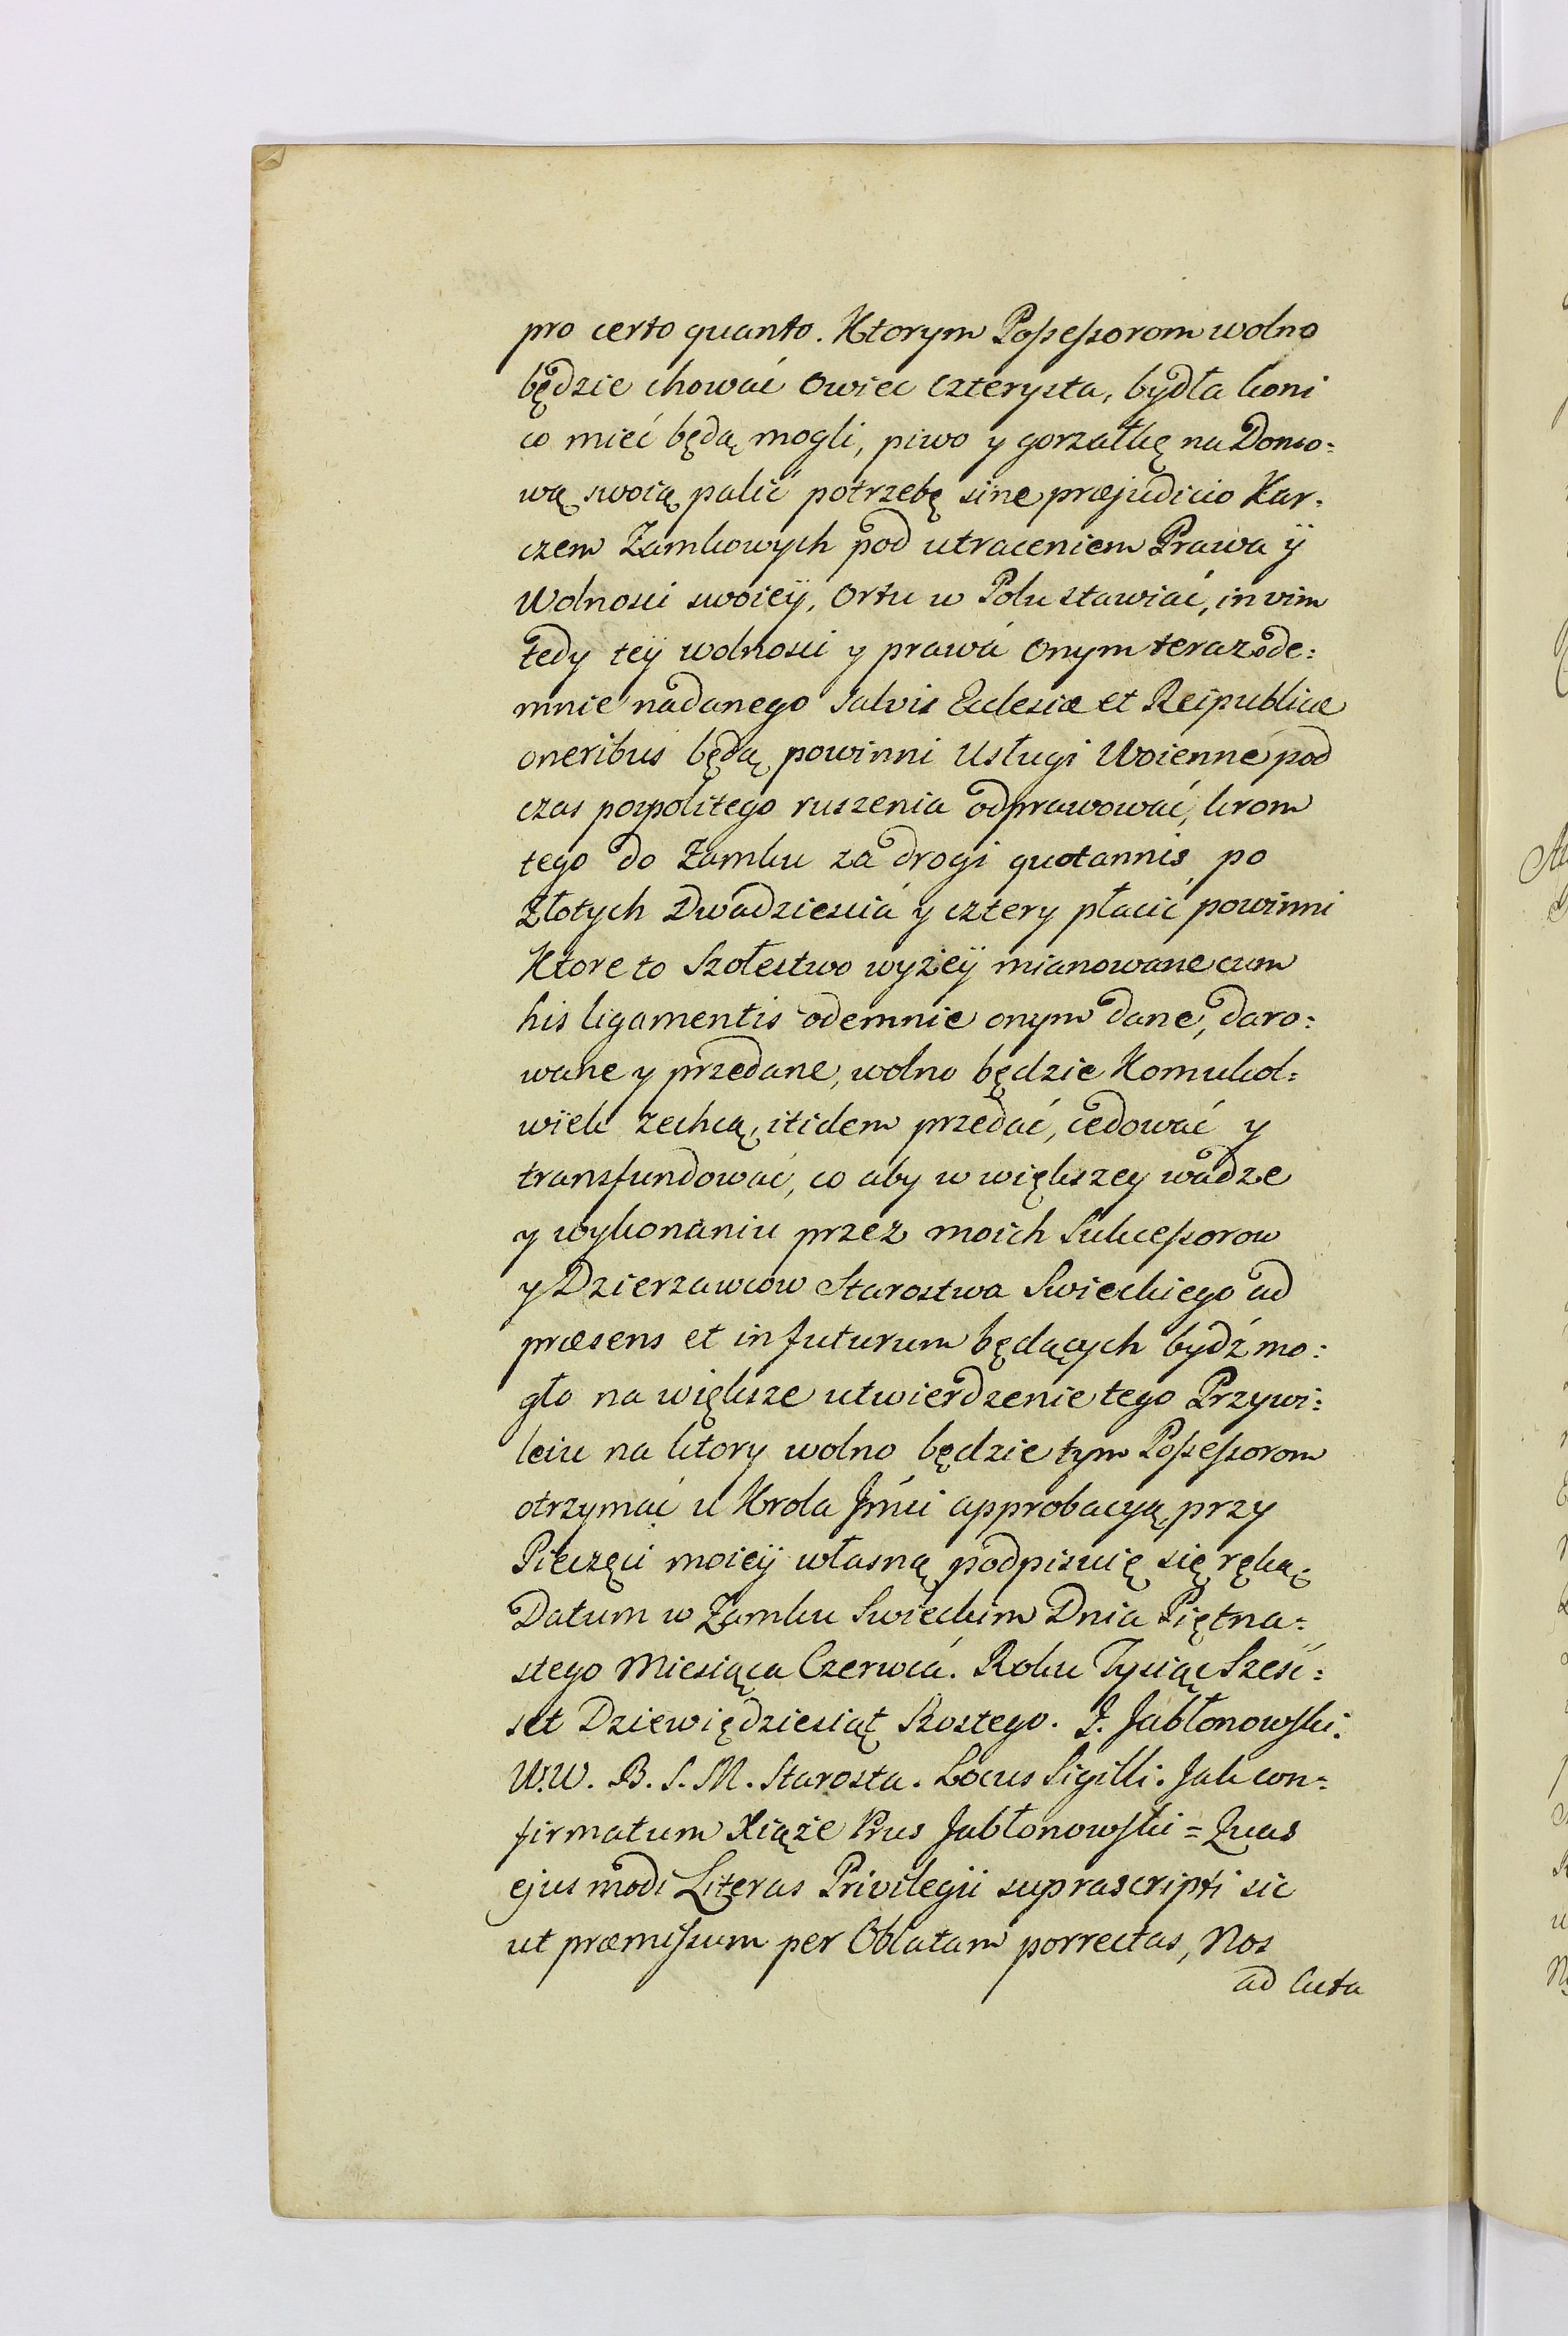 pro certo quanto. Ktorym Possessorom wolno
będzie chować owiec czterysta, bydła koni
co mieć będą mogli, piwo y gorzałkę na Domo=
wą swoią palić potrzebę sine præjudicio Kar=
czem Zamkowych pod utraceniem Prawa ÿ
Wolnosci swoieÿ, Ortu w Polu stawiać, in vim
tedy teÿ wolnosci y prawá onym teraz ode=
mnie nadanego salvis Eclesiæ et Reipublicæ
oneribus będą powinni Usługi Woienne pod
czas pospolitego ruszenia odprawować, krom
tego do Zamku za drogi quotannis po
Złotych Dwadziesciá y cztery płacić powinni
Ktore to Szołestwo wyżeÿ mianowane cum
his ligamentis odemnie onym dane, daro=
wane y przedane, wolno będzie Komukol=
wiek zechcą, itidem przedać, cedować y
transfundować, co aby w większey wadze
y wykonaniu przez moich Sukcessorow
y Dzierzawcow Starostwa Swieckiego ad
præsens et in futurum będących bydź mo=
gło na większe utwierdzenie tego Przywi=
leiu na ktory wolno będzie tym Possessorom
otrzymać u Krola Jmći approbacyą, przy
Pieczęci moieÿ własną podpisuię się ręką.
Datum w Zamku Swieckim Dnia Piętna=
stego Miesiąca Czerwcá. Roku Tysiąc Szesć=
set Dziewiędziesiąt Szostego. J. Jabłonowski.
W.W. B. S. M. Starosta. Locus Sigilli. Jak con=
firmatum Xiąże Prus Jabłonowski = Quas
ejusmodi Literas Privilegii suprascripti sic
ut præmissum per Oblatam porrectas, Nos
ad Acta